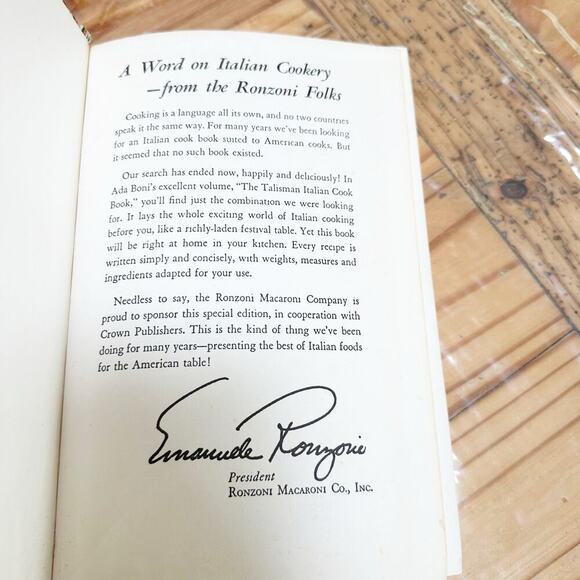 A Word on Italian Cookery
—from the Ronzoni Folks
Cooking is a language all its own, and no two countries
speak it the same way. For many years we've been looking
for an Italian cook book suited to American cooks. But
it seemed that no such book existed.
Our search has ended now, happily and deliciously! In
Ada Boni's excellent volume, "The Talisman Italian Cook
Book," you'll find just the combination we were looking
for. It lays the whole exciting world of Italian cooking
before you, like a richly-laden festival table. Yet this book
will be right at home in your kitchen. Every recipe is
written simply and concisely, with weights, measures and
ingredients adapted for your use.
Needless to say, the Ronzoni Macaroni Company is
proud to sponsor this special edition, in cooperation with
Crown Publishers. This is the kind of thing we've been
doing for many years—presenting the best of Italian foods
for the American table!
Emanuele Ronzoni
President
RONZONI MACARONI CO., INC.